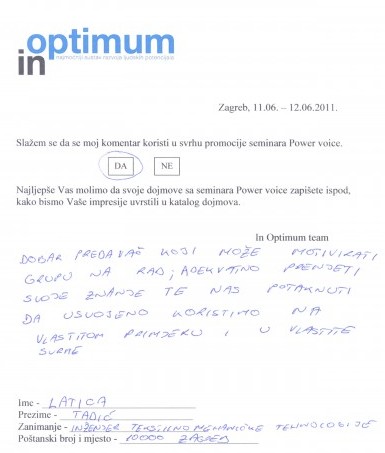 optimum
in najmoćniji sustav razvoja ljudskih potencijala
Zagreb, 11.06. – 12.06.2011.
Slažem se da se moj komentar koristi u svrhu promocije seminara Power voice.
DA NE
Najljepše Vas molimo da svoje dojmove sa seminara Power voice zapišete ispod,
kako bismo Vaše impresije uvrstili u katalog dojmova.
In Optimum team
DOBAR PREDAVAČ KOJI MOŽE MOTIVIRATI
GRUPU NA RAD; ADEKVATNO PRENJETI
SVOJE ZNANJE TE NAS POTAKNUTI
DA USVOJENO KORISTIMO NA
VLASTITOM PRIMJERU I U VLASTITE
SVRHE
Ime - LATICA
Prezime - TADIĆ
Zanimanje - INŽENJER TEKSTILNO MEHANIČKE TEHNOLOGIJE
Poštanski broj i mjesto - 10000 ZAGREB